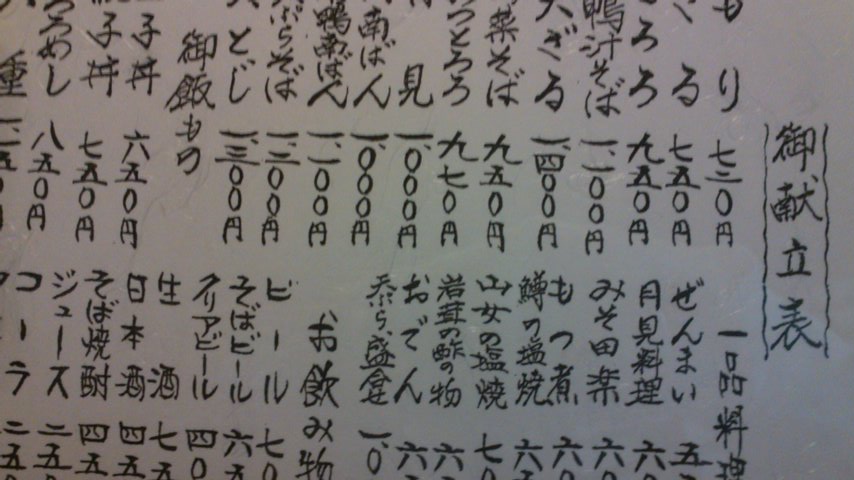 御献立表
もり 七二〇円
ざる 七五〇円
とろろ 九五〇円
鴨汁そば 一、一〇〇円
大ざる 一、四〇〇円
菜そば 九五〇円
つとろろ 九七〇円
見 一、〇〇〇円
南ばん 一、〇〇〇円
鴨南ばん 一、一〇〇円
ぷらそば 一、二〇〇円
とじ 一、三〇〇円
御飯もの
子丼 六五〇円
子丼 七五〇円
ろめし 八五〇円
重
一品料理
ぜんまい 五
月見料理 六
みそ田楽 六〇
もつ煮 六〇
鱒の塩焼 六〇
山女の塩焼 七〇
岩茸の酢の物 六
おでん 六
天ぷら盛合せ 一、〇
お飲み物
ビール 七〇
そばビール 六五
クリアビール 四〇
生酒 七五
日本酒 四五
そば焼酎 四五
ジュース 二五
コーラ 二五